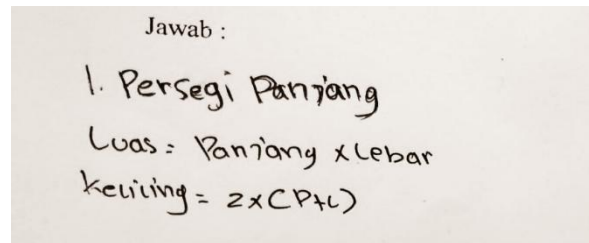 Jawab :
1. Persegi Panjang
Luas = Panjang x Lebar
Keliling = 2x(P+L)